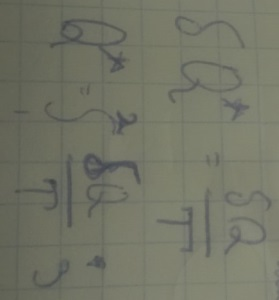 δQ* = δQ/T
Q* = ∫² δQ/T ;